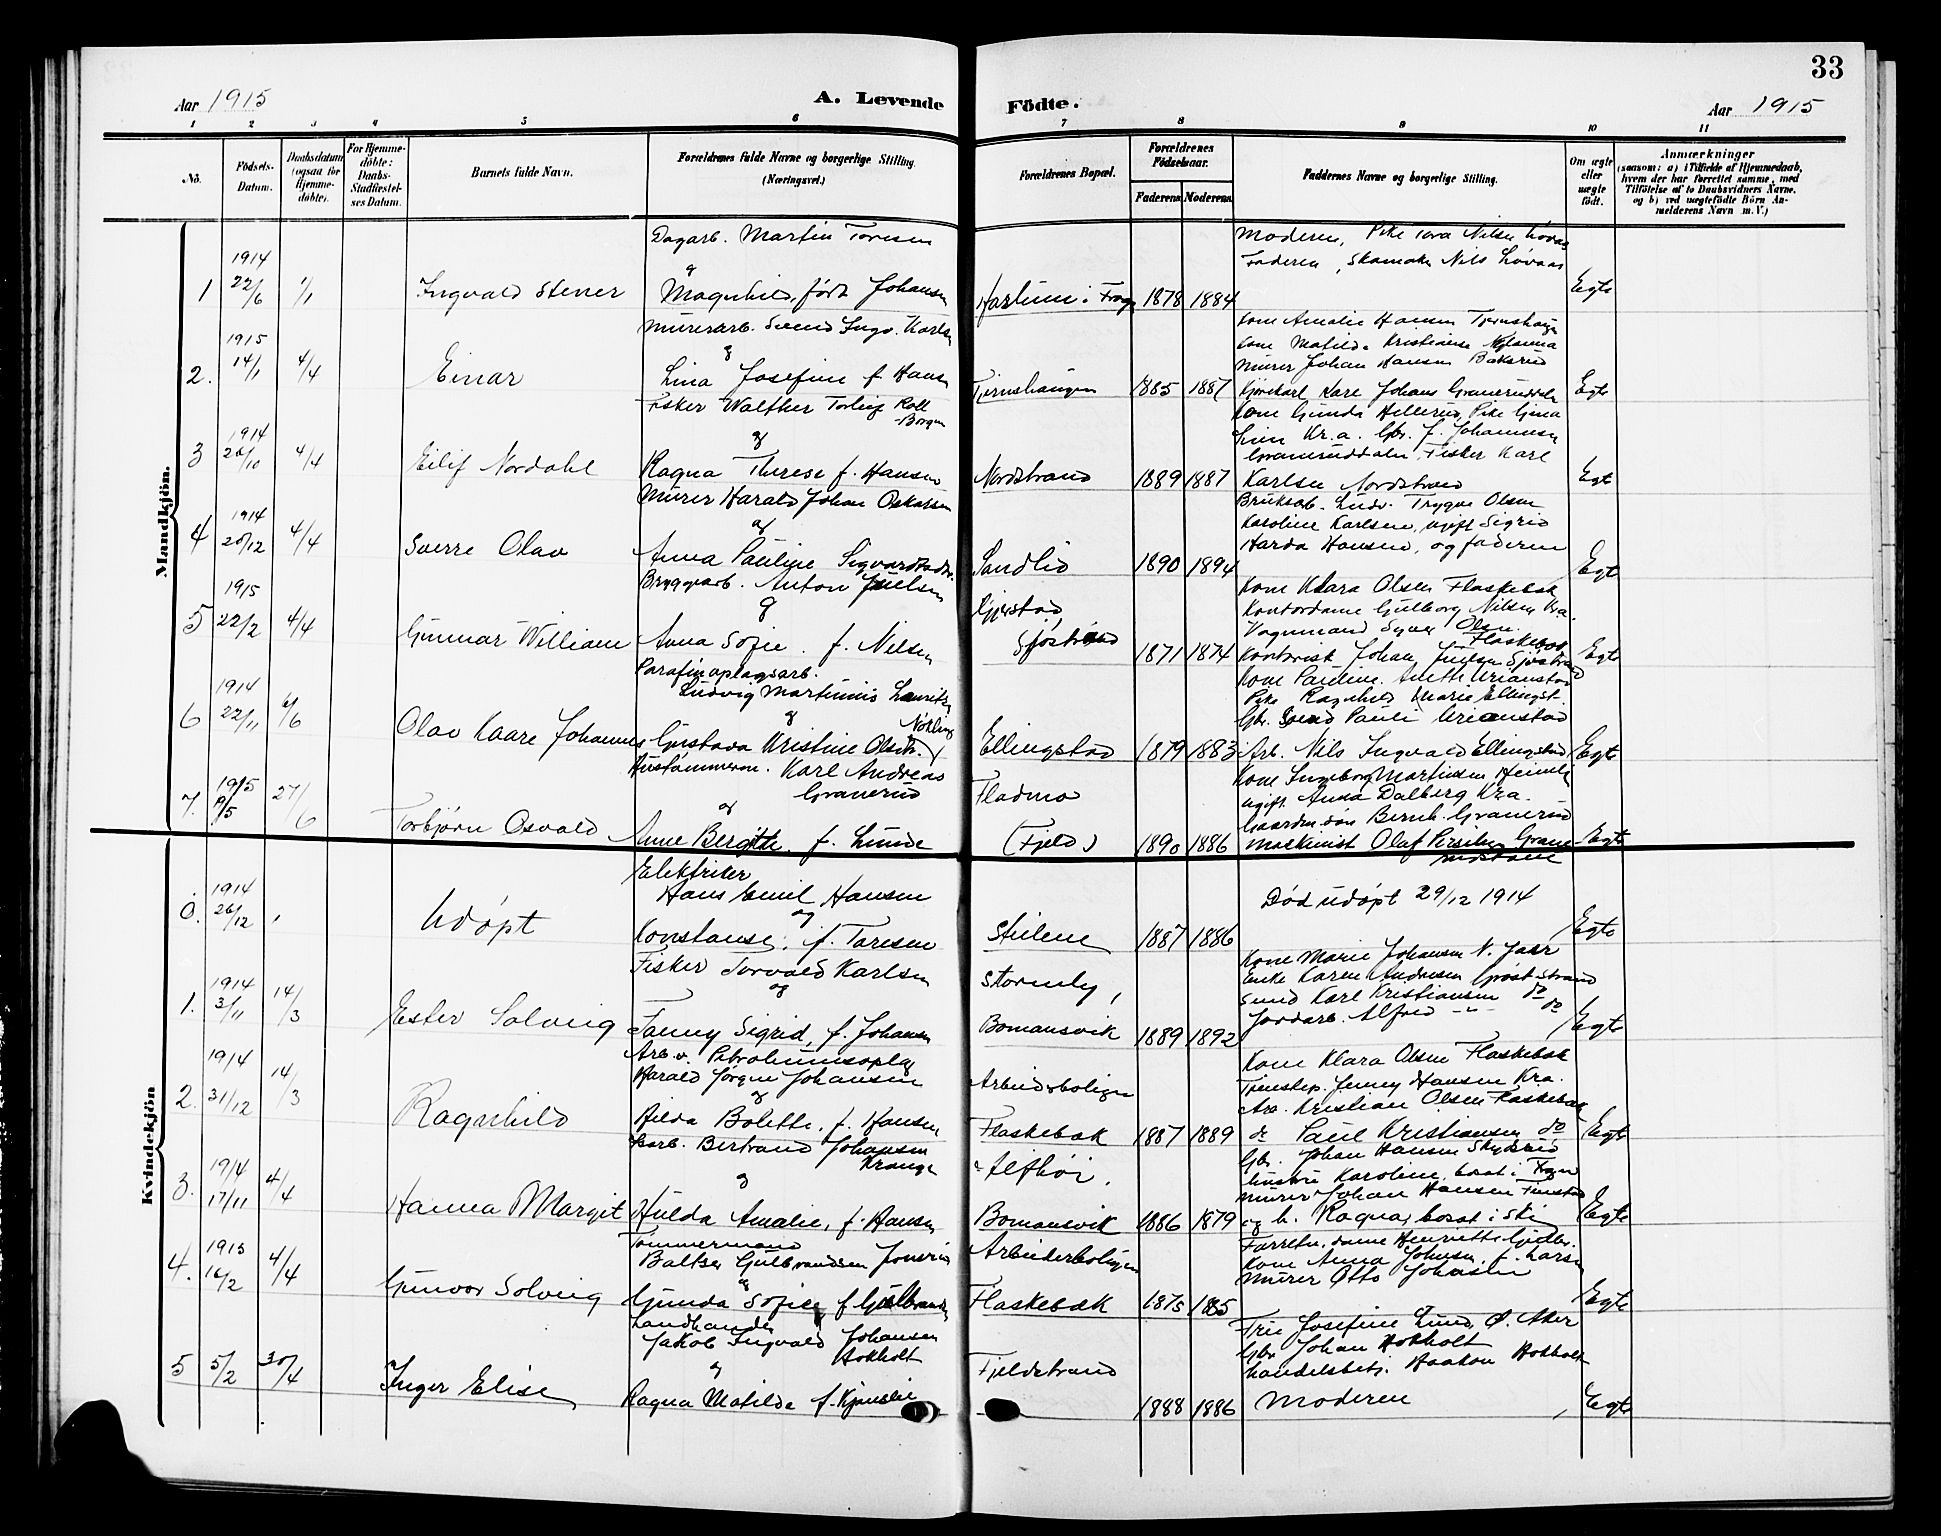 33
Aar 1915
A. Levende
Födte.
Aar 1915
1 2 3 4 5 6 7 8 9 10 11
No.
Födsels-
Datum.
Daabsdatum
(ogsaa for
Hjemme-
döbte).
For Hjemme-
döbte:
Daabs-
Stadfæstel-
ses Datum.
Barnets fulde Navn.
Forældrenes fulde Navne og borgerlige Stilling.
(Næringsvei.)
Forældrenes Bopæl.
Forældrenes
Födselsaar.
Faderens Moderens
Faddernes Navne og borgerlige Stilling.
Om ægte
eller
uægte
født.
Anmærkninger
(saasom: a) i Tilfælde af Hjemmedaab,
hvem der har forrettet samme, med
Tilföielse af to Daabsvidners Navne,
og b) ved uægtefödte Börn An-
melderens Navn m. V.)
Mandkjön.
1
1914
22/6
1/1
Ingvald Stener
Dagarb. Martin Toresen
og
Magnhild, født Johansen
Haslum i Frogn
1878 1884
Moderen, Pike Tora Nilsen Løvaas
Faderen, Skomaker Nils Løvaas
Egte
2.
1915
14/1
4/4
Einar
Murerarb. Svend Ingv. Karlsen
og
Lina Josefine f. Hansen
Tjernshaugen
1885 1887
Kone Amalie Hansen Tjernshaugen
Kone Matilde Kristiansen
Murer Johan Hansen Bakerud
Kjørekarl Kare Johans Graneruddalen
Egte
3
1914
26/10
4/4
Eilif Nordahl
Fisker Walther Torleif Roll
Borgen
og
Ragna Therese f. Hansen
Nordstrand
1889 1887
Kone Gunda Hellerud, Pike Gina
Lien Kr.a. Gbr. f. Johannesen
Graneruddalen, Fisker Karl
Karlsen Nordstrand
Egte
4
1914
20/12
4/4
Sverre Olav
Murer Harald Johan Oskarsen
og
Anna Pauline Sigvardsdtr.
Sandlid
1890 1894
Bruksarb. Ludv. Trygve Olsen
Karoline Karlsen, ugift Sigrid
Harda Hansen, og faderen
Egte
5
1915
22/2
4/4
Gunnar William
Bryggearb. Anton Juelsen
og
Anna Sofie. f. Nilsen
Gjerstad,
Sjøstrand
1871 1874
Kone Klara Olsen Flaskebek
Kontordame Gulborg Nilsen Kra.
Vognmand Syver Olsen
Flaskebæk
Kontorist Johan Juelsen Sjøstrand
Egte
6
1914
22/11
6/6
Olav Kaare Johannes
Parafinoplagsarb.
Ludvig Martinius Lauritz
Nøkling
og
Gustava Kristine Olsdtr.
Ellingstad
1879 1883
Kone Pauline Anette Urianstad
Pike Ragnhild Marie Ellingst.
Gbr. Svend Pauli Urianstad
Arb. Nils Ingvald Ellingstad
Egte
7.
1915
19/5
27/6
Torbjørn Osvald
Hustømmerm. Karl Andreas
Granerud
og
Anne Bergitte. f. Lunde
Fladmo
(Fjeld)
1890 1886
Kone Ingeborg Martinsen Heimli
Ugift Anna Dalberg Kra.
Gaardm.søn Bernh. Granerud
Maskinist Olaf Persen Grane
Egte
Kvindekjön
0.
1914
26/12
Udøpt
Elektriker
Hans Emil Hansen
og
Konstanse, f. Toresen
Steilene
1887 1886
Død udøpt 29/12 1914
Egte
1.
1914
3/11
14/3
Ester Solveig
Fisker Torvald Karlsen
og
Fanny Sigrid, f. Johansen
Stormly,
Bomansvik
1889 1892
Kone Marie Johansen N. Jaer
Enke Karen Andresen Grostrand
Svend Karl Kristiansen do
Jordarb. Alfred -"- do
Egte
2.
1914
31/12
14/3
Ragnhild
Arb. v. Petroleumsoplag
Harald Jørgen Johansen
og
Hilda Bolette, f. Hansen
Arbeiderboligen
Flaskebæk
1887 1889
Kone Klara Olsen Flaskebæk
Tjenstep. Jenny Hansen, Kra.
Arb. Kristian Olsen Flaskebæk
do Paul Kristiansen do
Egte
3.
1914
17/11
4/4
Hanna Margit
Bertrand Johansen
Krange
og
Hulda Amalie, f. Hansen
Alfhøi,
Bomansvik
1886 1879
Gbr. Johan Hansen Skydsrud
hustru Karoline, bosat i Frogn
Murer Johan Hansen Finstad
og h. Ragna, bosat i Ski
Egte
4.
1915
16/2
4/4
Gunvor Solveig
Tømmermand
Baltser Gulbrandsen Jonsrud
og
Gunda Sofie f. Gulbrandsen
Arbeiderboligen
Flaskebæk
1875 1885
Forretn. dame Henriette
Kone Anna Johnsen, f. Larsen
Murer Otto Johnsen
Egte
5
5/2
30/4
Inger Elise
Landhandler
Jakob Ingvald Johansen
Hokholt
og
Ragna Matilde f. Kjønslie
Fjeldstrand
1888 1886
Fru Josefine Lund, Ø. Aker
Gbr Johan Hokholt
Handelsbetj. Haakon Hokholt
Moderen
Egte